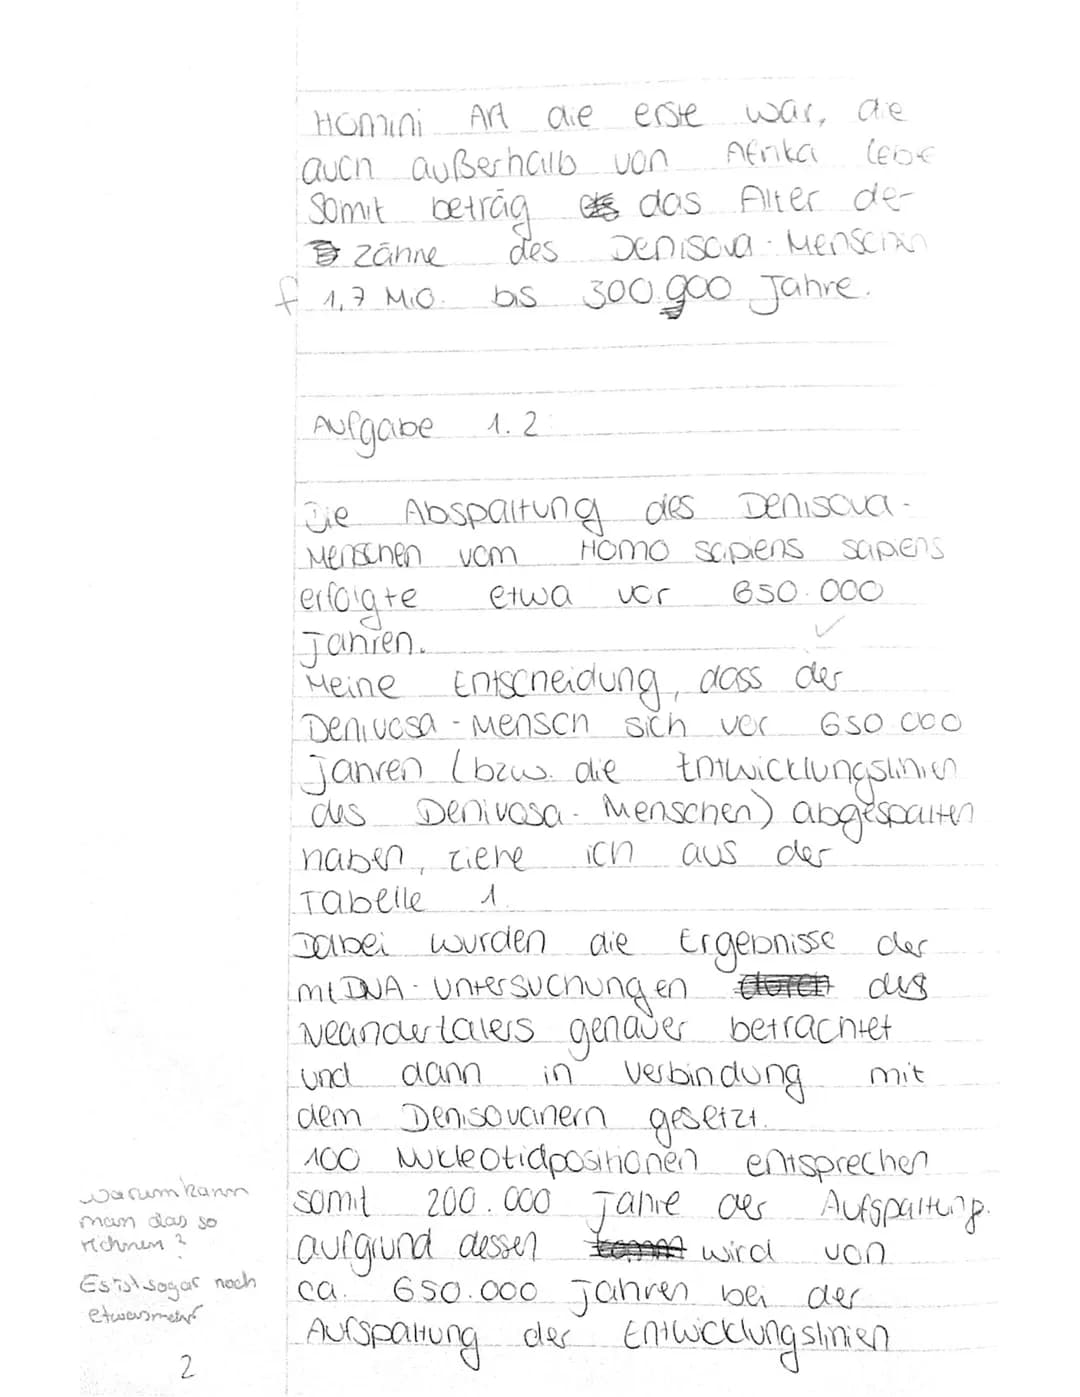 Homini Art die erste war, die
auch außerhalb von Afrika lebe
Somit beträg das Alter der
Zähne des Denisova-Menschen
f 1,7 Mio. bis 300.900 Jahre.
Aufgabe 1.2:
Die Abspaltung des Denisova-
Menschen vom Homo sapiens sapiens
erfolgte etwa vor 650.000
Jahren.
✓
Meine Entscheidung, dass der
Denivosa-Mensch sich vor 650.000
Jahren (bzw. die Entwicklungslinien
des Denivosa-Menschen) abgespalten
haben, ziehe ich aus der
Tabelle 1.
Dabei wurden die Ergebnisse der
mtDNA-Untersuchungen des
Neandertalers genauer betrachtet
und dann in Verbindung mit
dem Denisovanern gesetzt.
100 Nukleotidpositionen entsprechen
somit 200.000 Jahre der Aufspaltung.
aufgrund dessen wird von
ca. 650.000 Jahren bei der
Aufspaltung der Entwicklungslinien
warum kann
man das so
rechnen?
Es ist sogar noch
etwas mehr
2